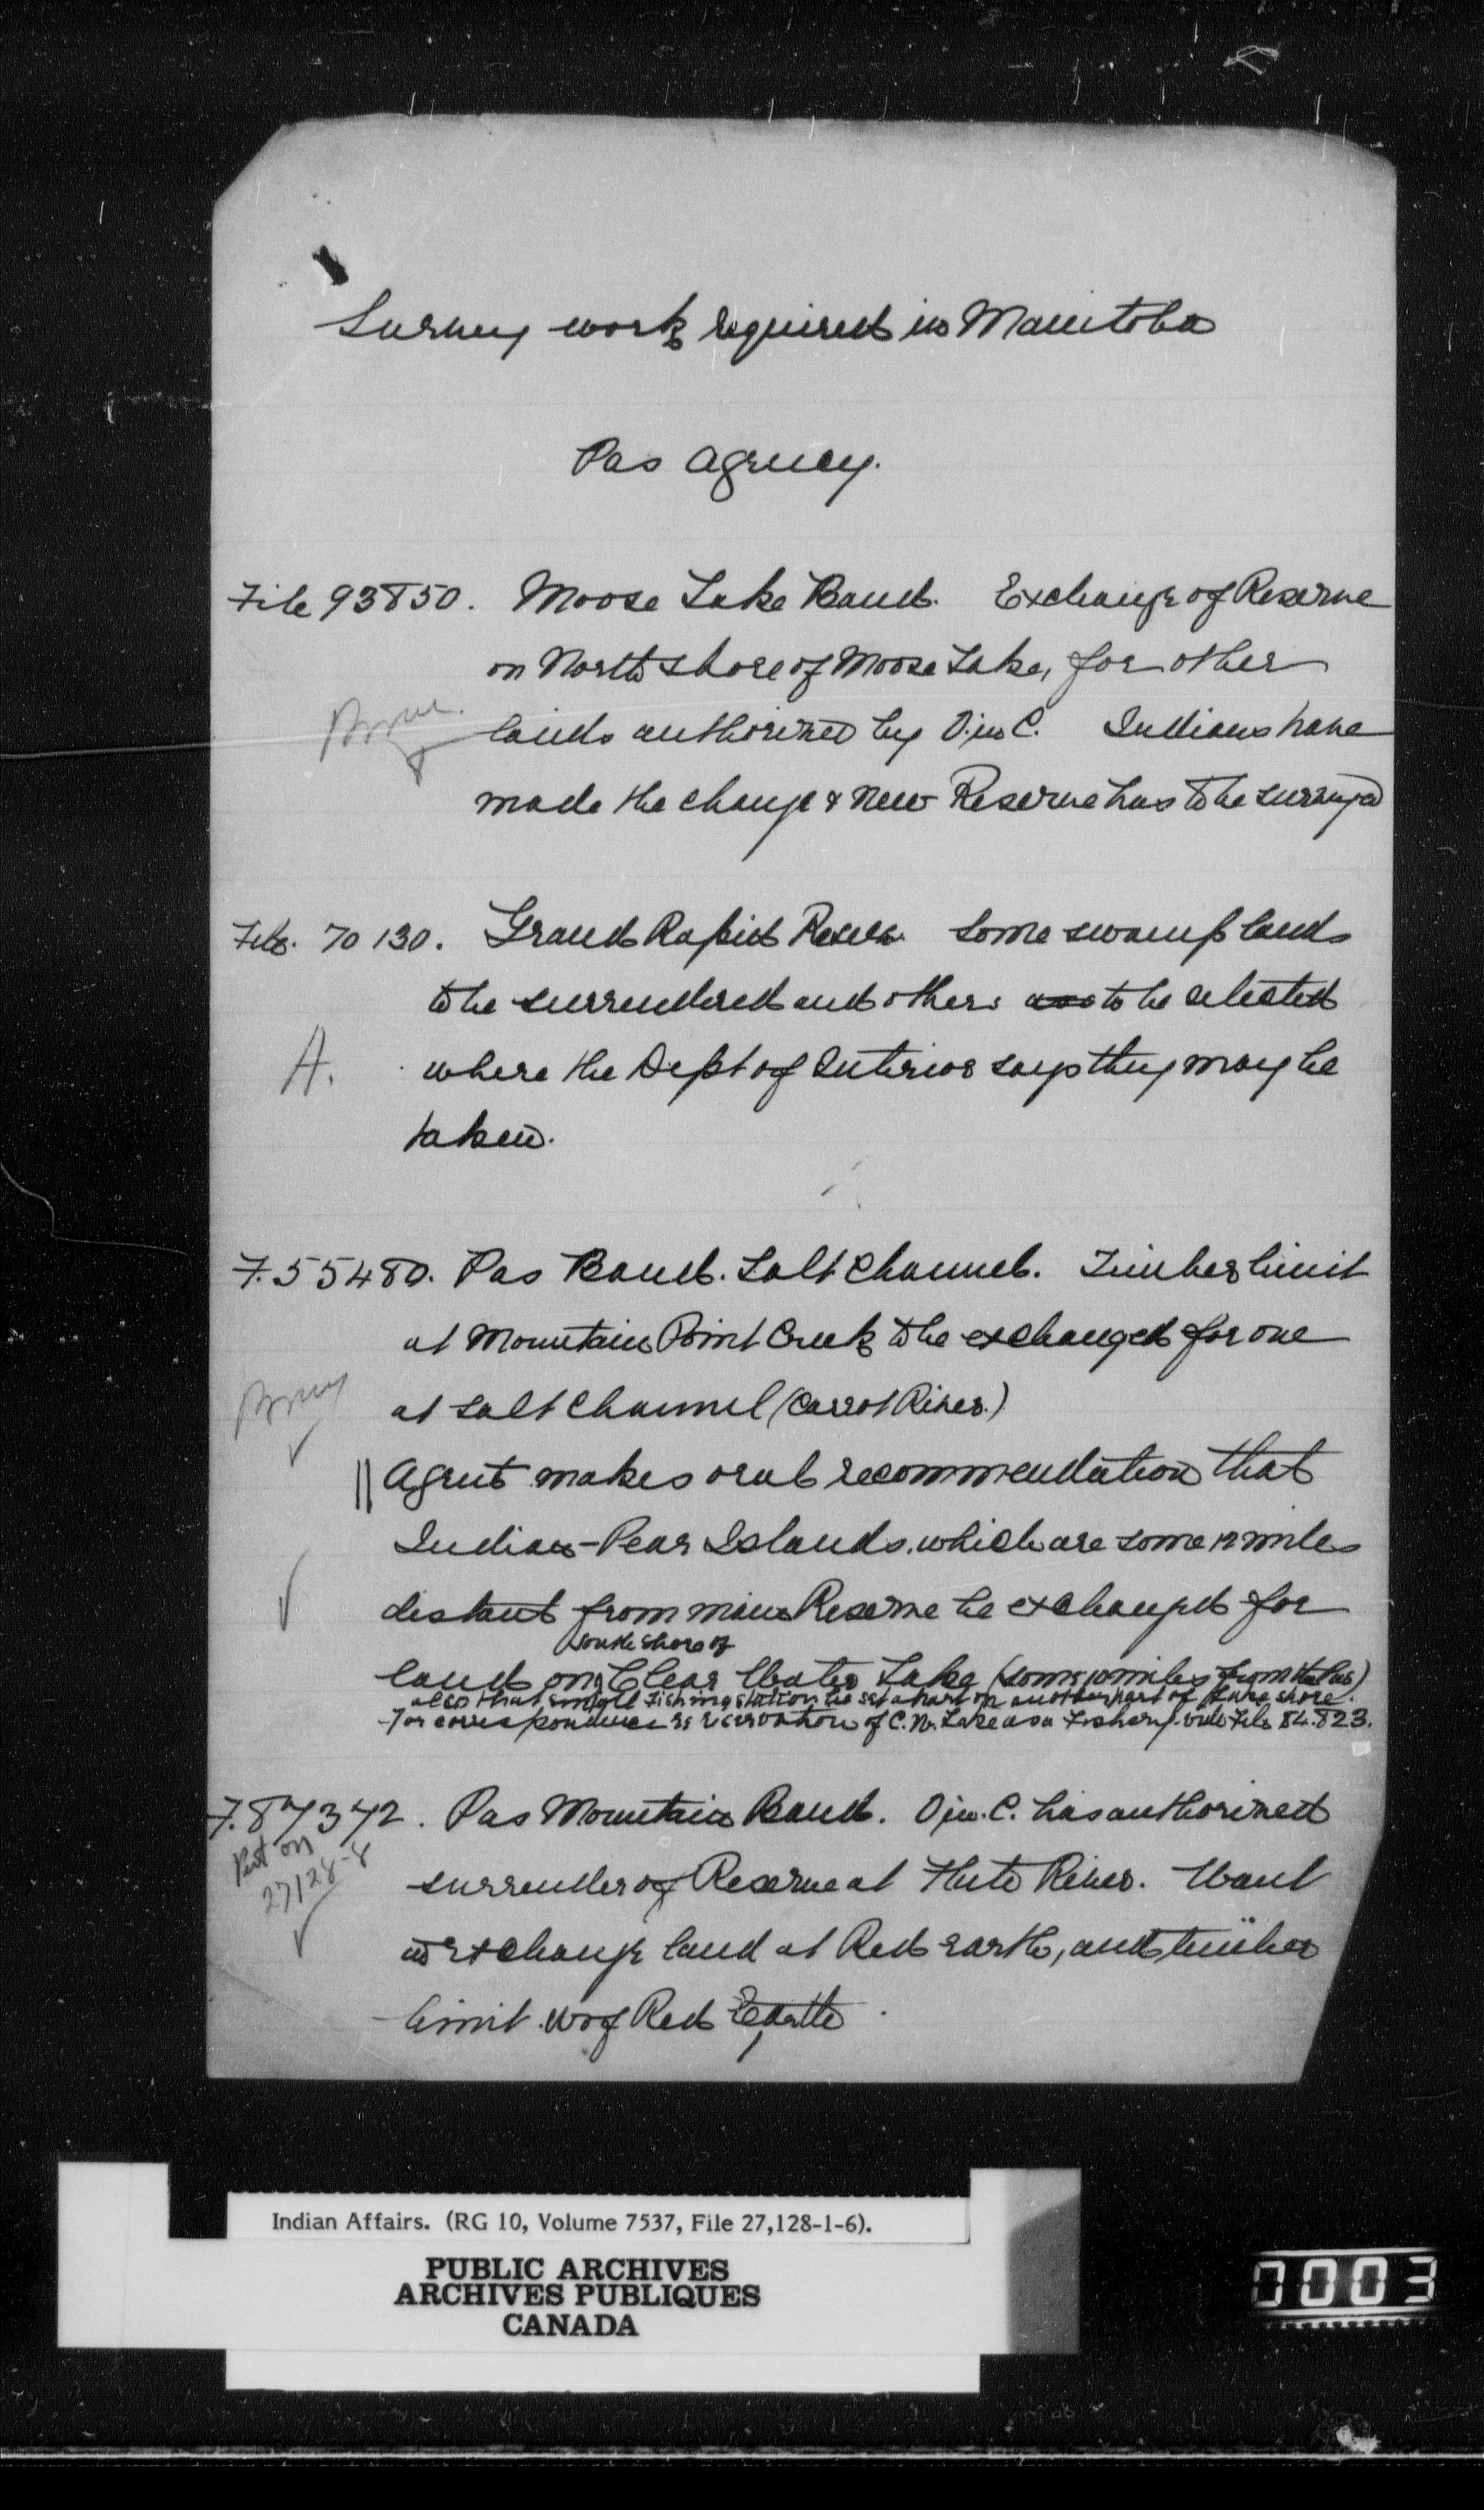 Survey work required in Manitoba
Pas Agency.
File 93850. Moose Lake Band. Exchange of Reserve
on North shore of Moose Lake, for other
lands authorized by O. in C. Indians have
made the change & new Reserve has to be surveyed
File. 70130. Grand Rapids Reserve. Some swamp lands
to be surrendered and others to be selected
A. where the Dept of Interior says they may be
taken.
F. 55480. Pas Band. Salt Channel. Timber limit
at Mountain Point Creek to be exchanged for one
at Salt Channel (Carrot River.)
|| Agent makes oral recommendation that
Indian-Pear Islands, which are some 12 miles
distant from main Reserve be exchanged for
south shore of
land on Clear Water Lake (some 10 miles from the Pas)
also that small fishing station be set apart on another part of Lake shore.
For correspondence re reservation of C. W. Lake as a Fishery. vide File 84.823.
F. 87372. Pas Mountain Band. O. in. C. has authorized
Put on
27128-8
surrender of Reserve at Flute River. Want
in exchange land at Red Earth, and timber
limit W of Red Earth
Indian Affairs. (RG 10, Volume 7537, File 27,128-1-6).
PUBLIC ARCHIVES
ARCHIVES PUBLIQUES
CANADA
0003